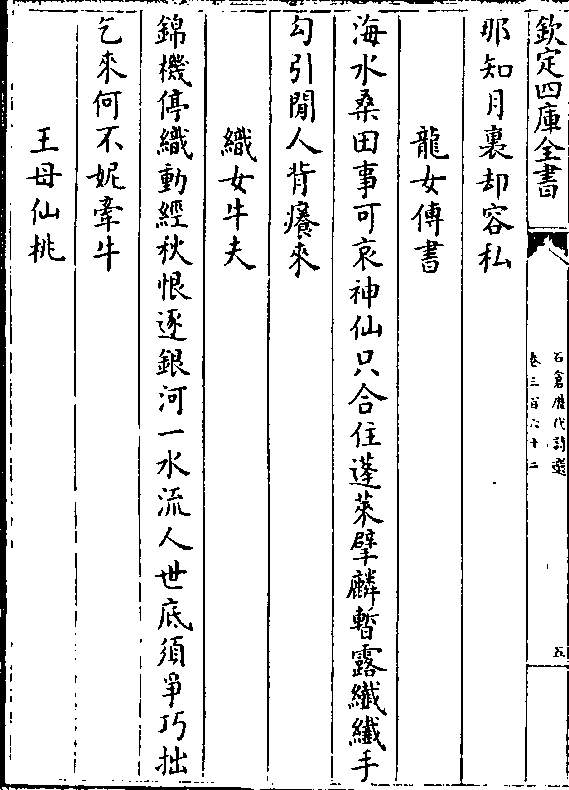 欽定四庫全書
石倉歷代詩選
卷三百六十二
五
那知月裏却容私
龍女傳書
海水桑田事可哀神仙只合住蓬萊擘麟暫露纖纖手
勾引閒人背癢來
織女牛夫
錦機停織動經秋恨逐銀河一水流人世底須爭巧拙
乞來何不妮牽牛
王母仙桃